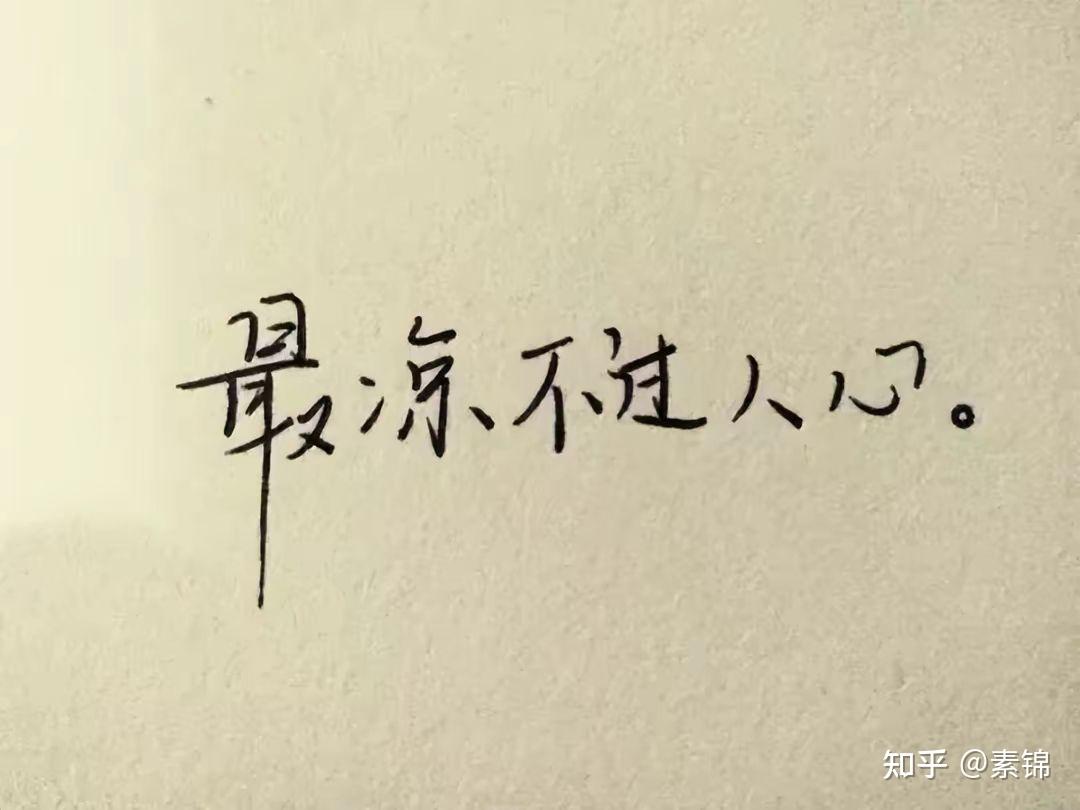 最凉不过人心。
知乎 @素锦